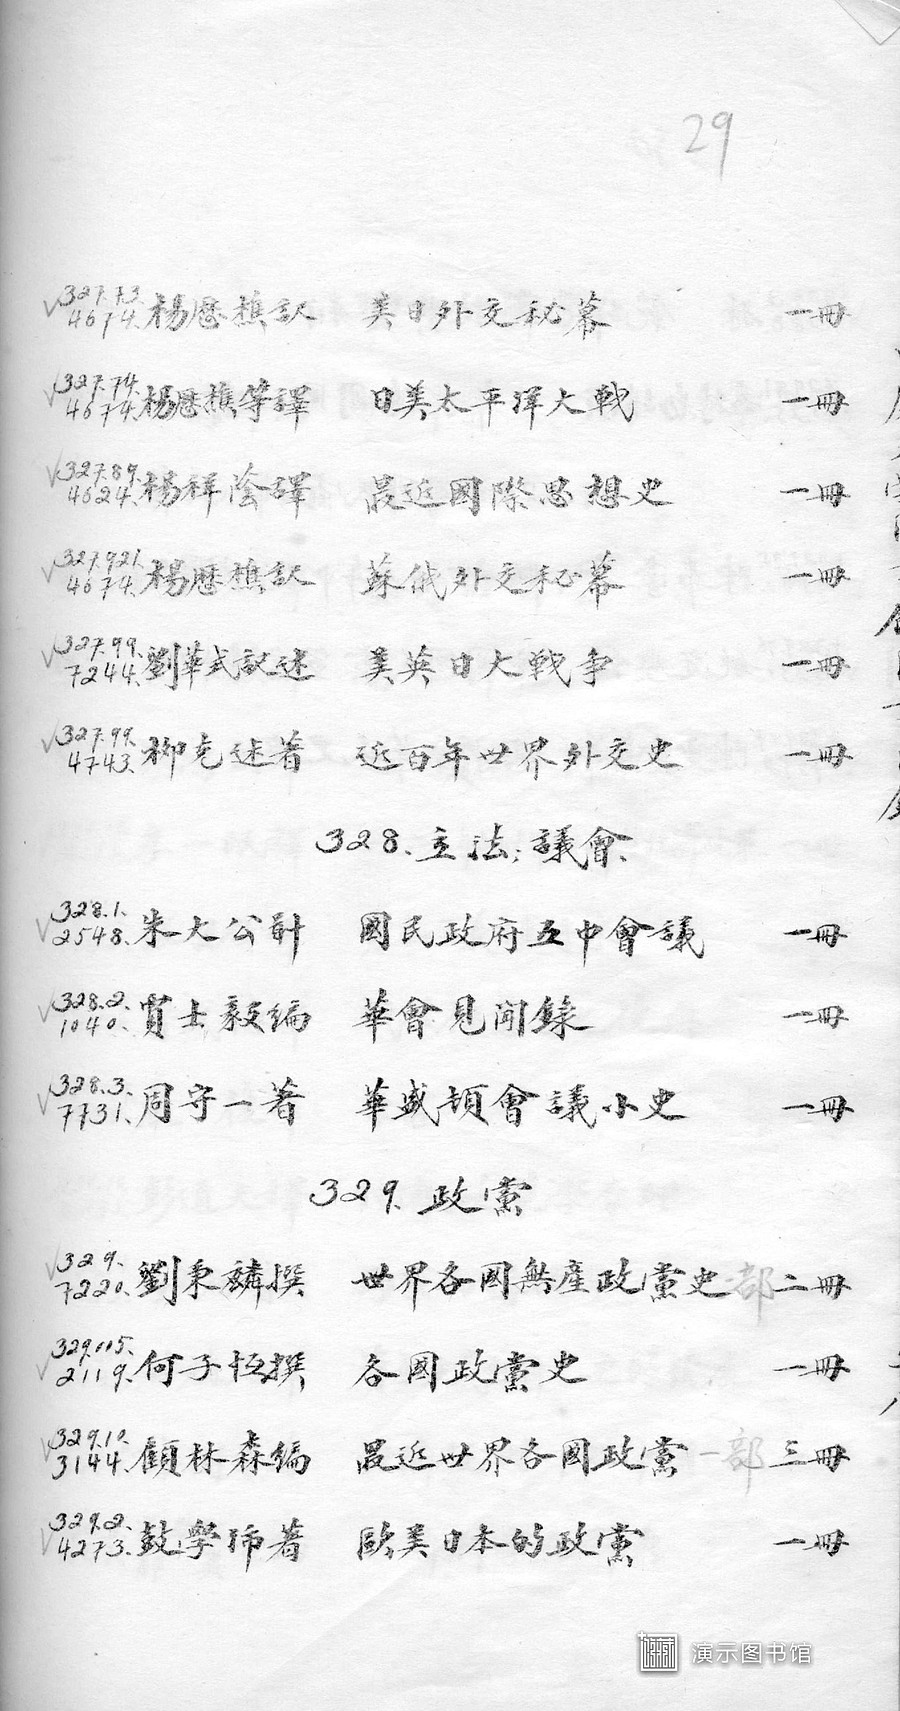 29
327.73. 楊歷樵訳 美日外交秘幕 一冊
4674.
327.74. 楊歷樵等譯 日美太平洋大戰 一冊
4674.
327.89. 楊祥蔭譯 最近國際思想史 一冊
4624.
327.921. 楊歷樵訳 蘇俄外交秘幕 一冊
4674.
327.99. 劉華式訳述 美英日大戰爭 一冊
7244.
327.99. 柳克述著 近百年世界外交史 一冊
4743.
328. 立法;議會.
328.1. 朱大公 國民政府五中會議 一冊
2548.
328.2. 賈士毅編 華會見聞錄 一冊
1040.
328.3. 周守一著 華盛頓會議小史 一冊
7731.
329. 政黨
329. 劉秉麟撰 世界各國無產政黨史 部 二冊
7220.
329.115. 何子恆撰 各國政黨史 一冊
2119.
329.10. 顧林森編 最近世界各國政黨 一部 三冊
3144.
329.2. 學沛著 歐美日本的政黨 一冊
4273.
演示图书馆